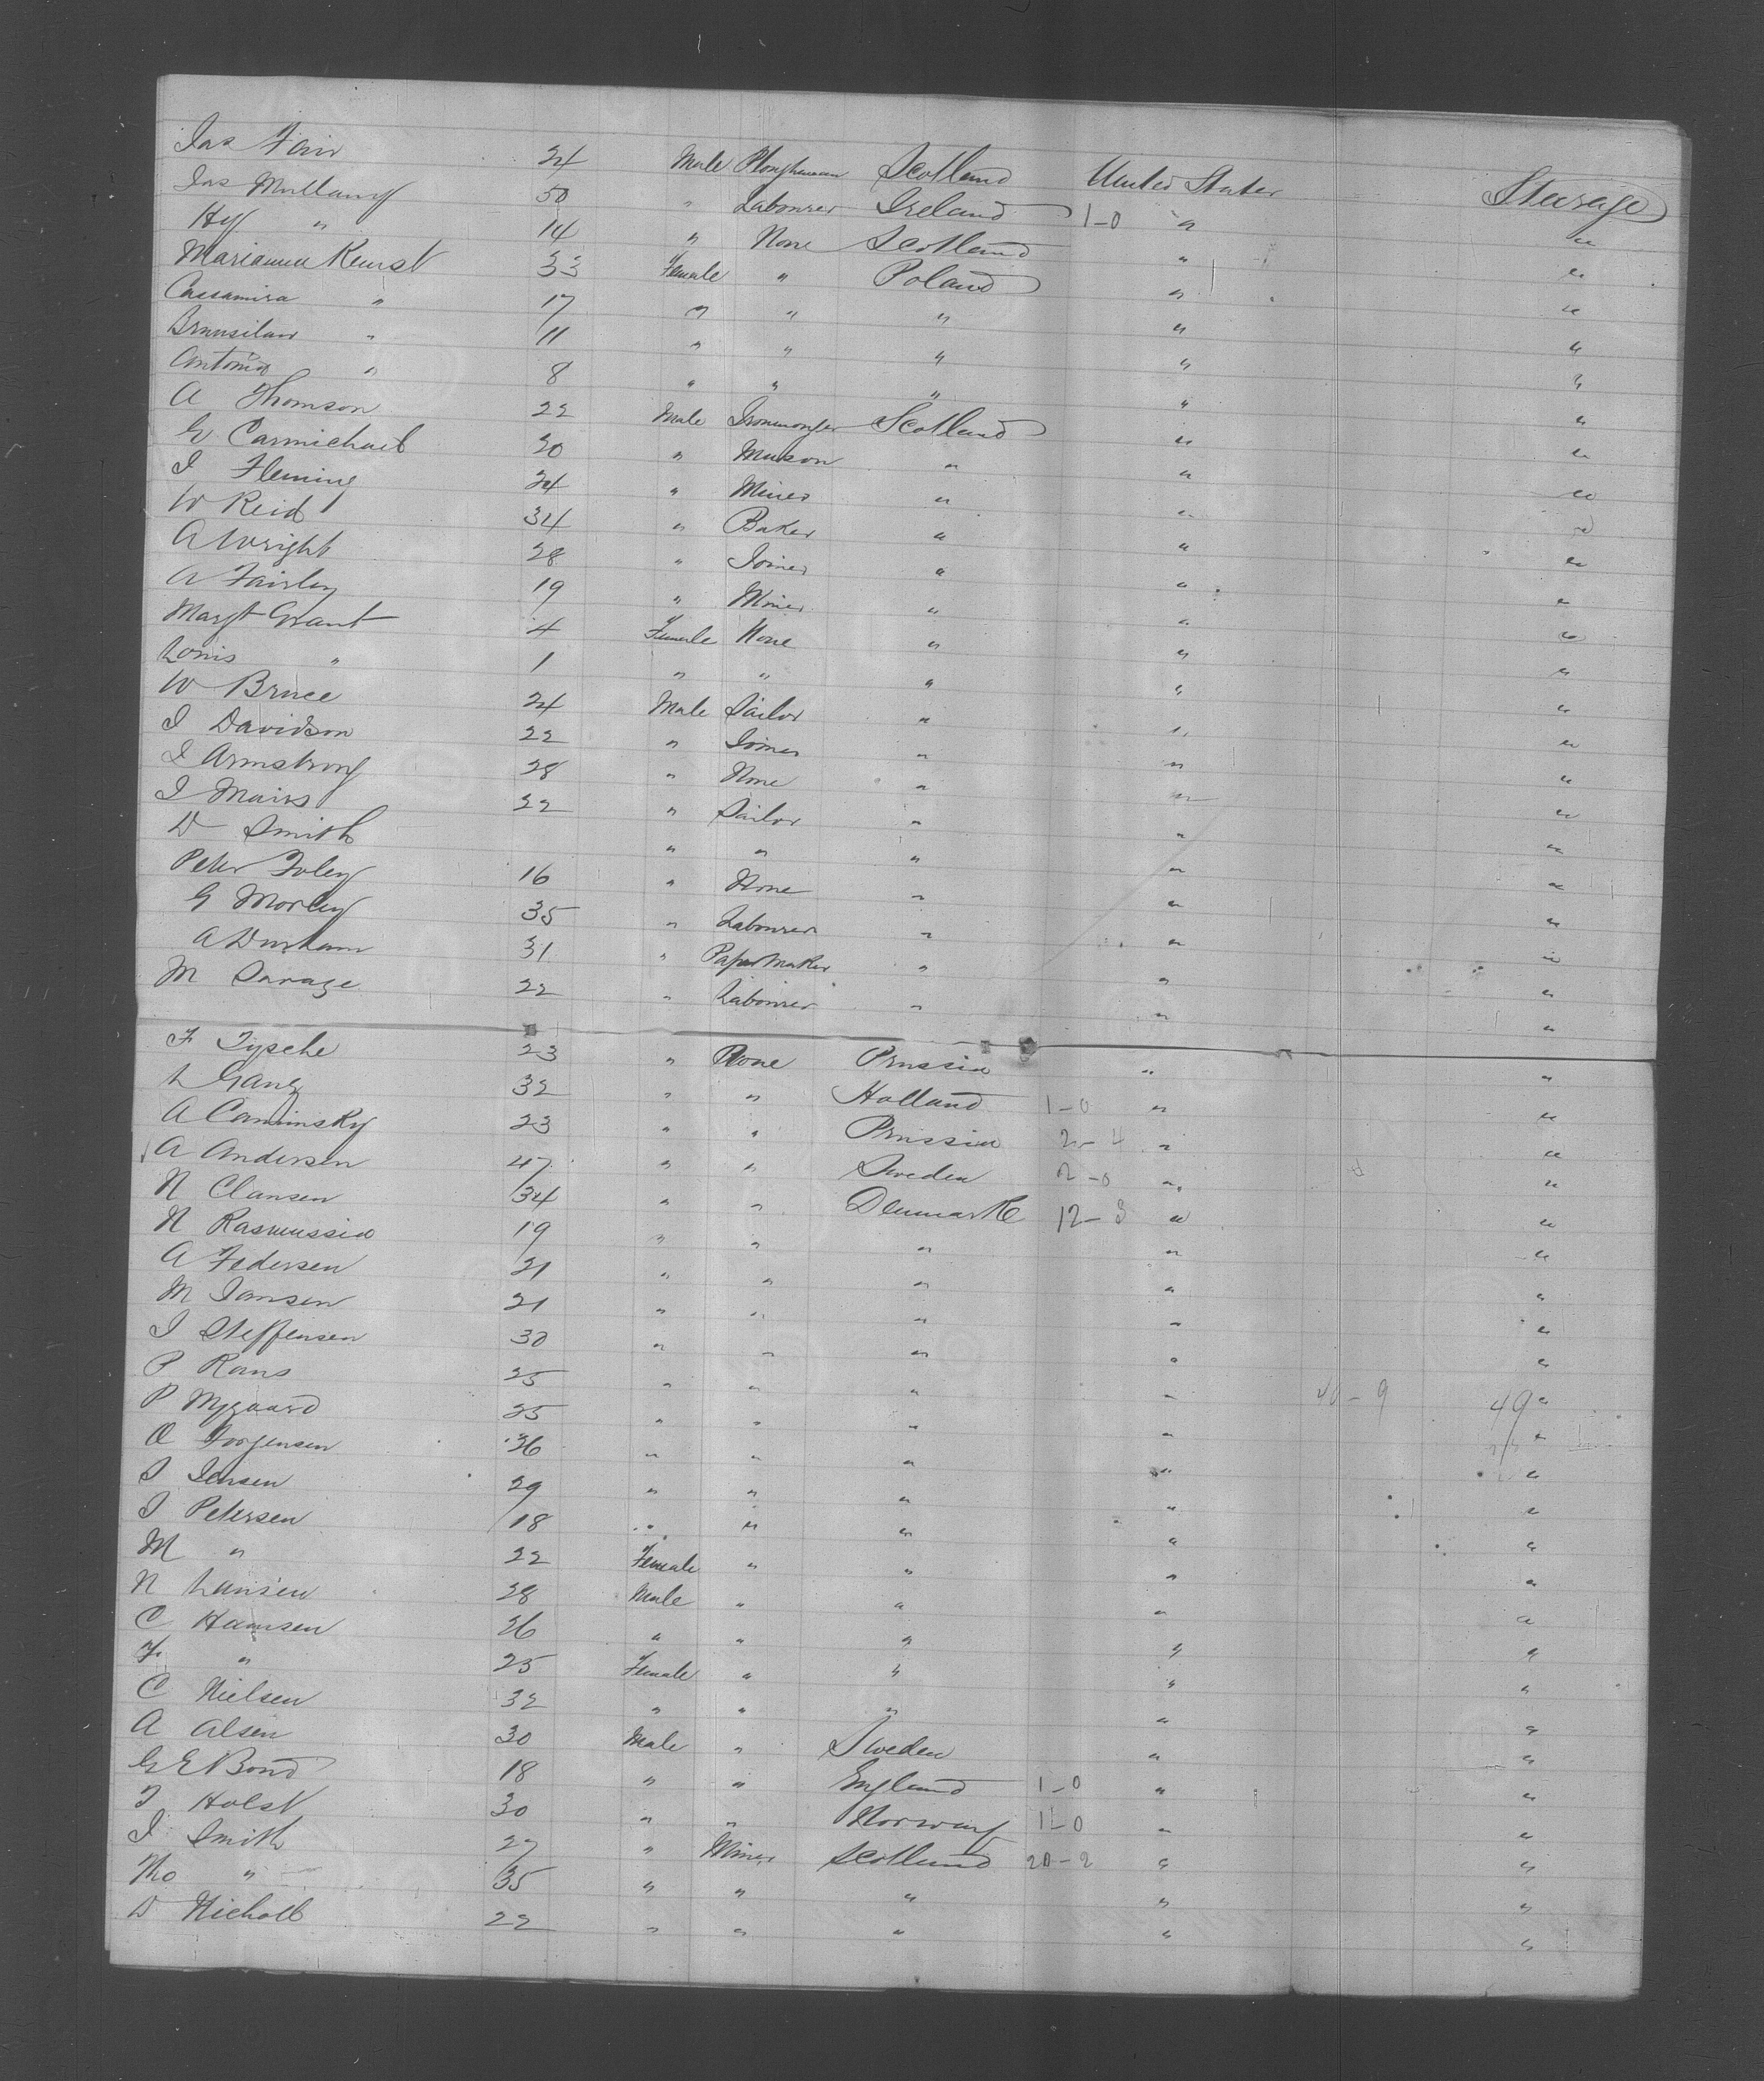 Jas Fair 24 Male Ploughman Scotland United States Steerage
Jas Mullany 50 " Labourer Ireland 1-0 " "
Hy " 14 " None Scotland " "
Marianna Kunst 33 Female " Poland " "
Casamira " 17 " " " " "
" 11 " " " " "
Antonia " 8 " " " " "
A Thomson 22 Male Ironmonger Scotland " "
G Carmichael 20 " Mason " " "
J Fleming 24 " Miner " " "
W Reid 34 " Baker " " "
A Wright 28 " Joiner " " "
A Fairley 19 " Miner " " "
Margt Grant 4 Female None " " "
Louis " 1 " " " " "
W Bruce 24 Male Sailor " " "
J Davidson 22 " Joiner " " "
J Armstrong 28 " None " " "
J Mairs 22 " Sailor " " "
D Smith " " " " "
Peter Foley 16 " None " " "
G Morley 35 " Labourer " " "
A Durham 31 " Paper Maker " " "
M Savage 22 " Labourer " " "
F Tysche 23 " None Prussia " "
L Ganz 32 " " Holland 1-0 " "
A Caminsky 23 " " Prussia 2-4 " "
A Andersen 47 " " Sweden 2-0 " "
N Clausen 34 " " Denmark 12-3 " "
N Rasmussen 19 " " " " "
A Federsen 21 " " " " "
M Jansen 21 " " " " "
J Steffensen 30 " " " " "
P Rans 25 " " " " 40-9 49 "
P Mygaard 25 " " " " "
O Jorgensen 26 " " " " "
S Jensen 29 " " " " "
J Petersen 18 " " " " "
M " 22 Female " " " "
N Lansen 28 Male " " " "
C Hamsen 26 " " " " "
F " 25 Female " " " "
C Nielsen 32 " " " " "
A Alsen 30 Male " Sweden " "
G E Bond 18 " " England 1-0 " "
T Holst 30 " " Norway 1-0 " "
J Smith 27 " Miner Scotland 20-2 " "
Tho " 35 " " " " "
D Nicholl 22 " " " " "